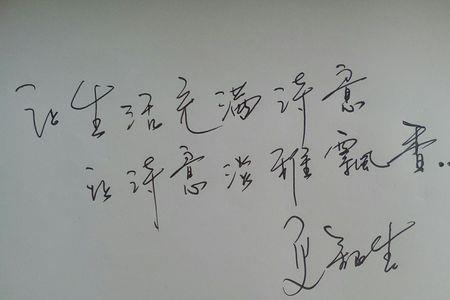 让生活充满诗意
让诗意淡雅飘香..